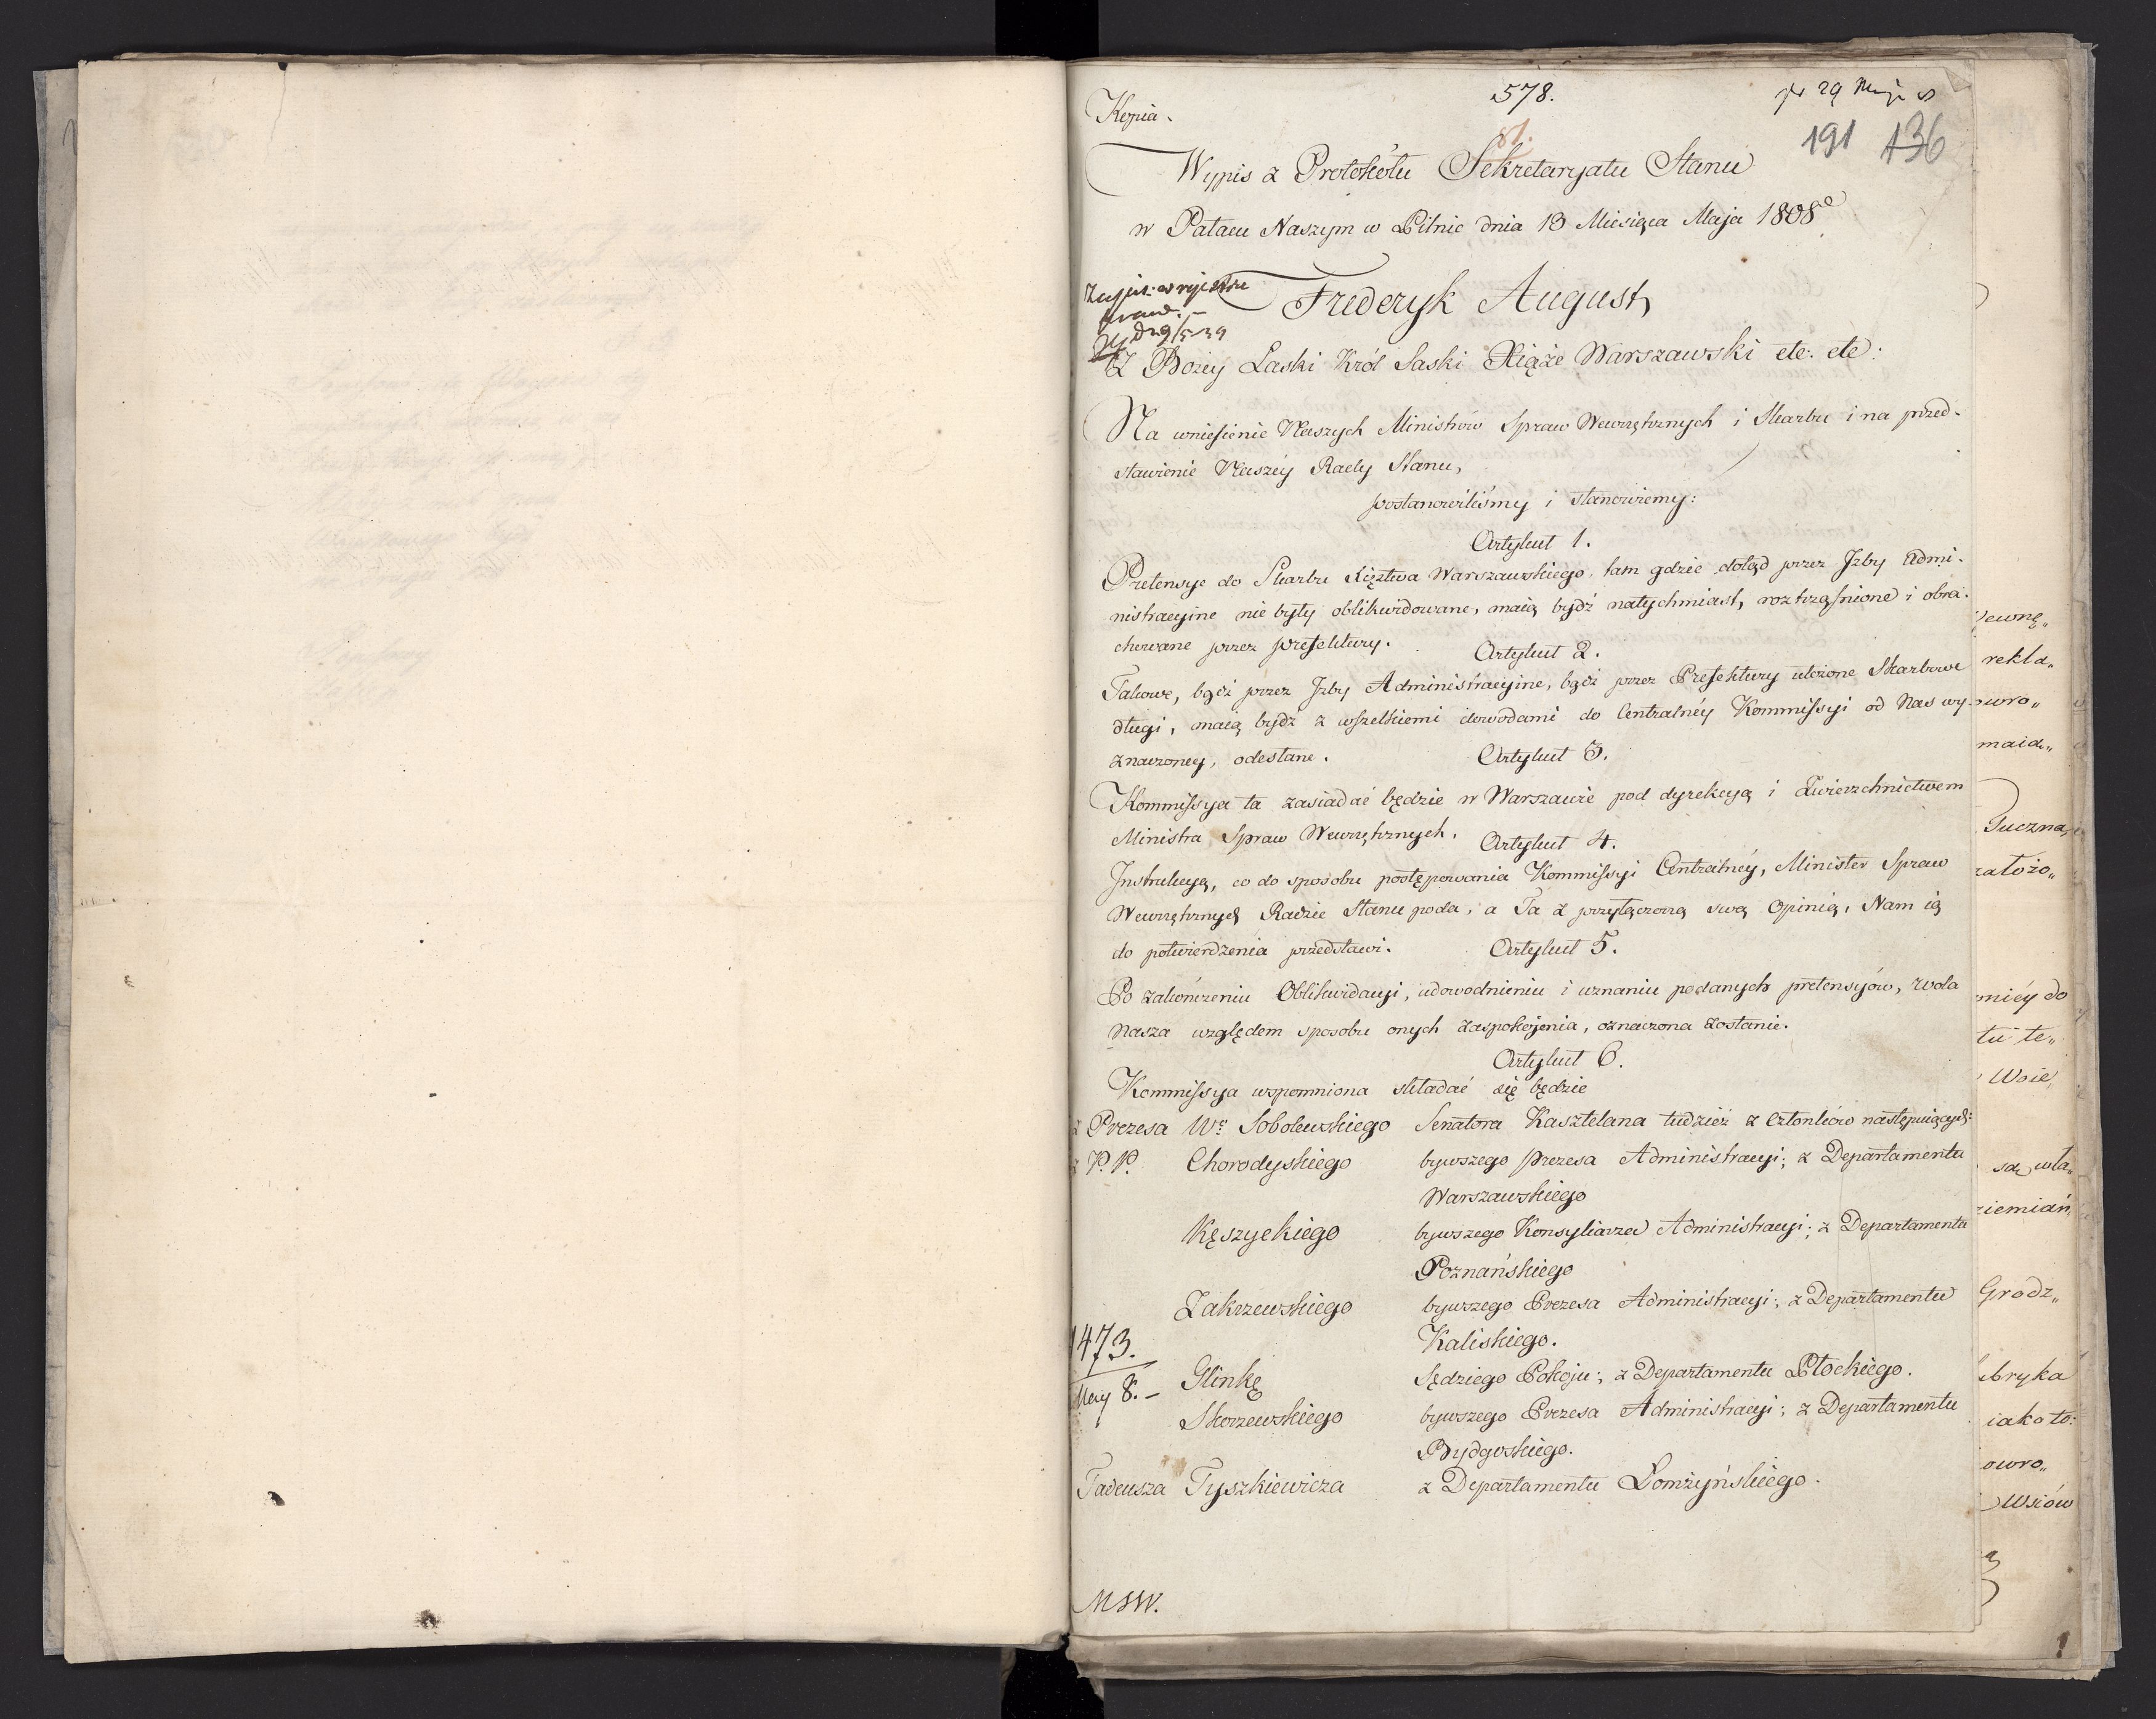 Kopia.
578.
pr 29 Maja
81.
191 136
Wypis z Protokółu Sekretaryatu Stanu
w Pałacu Naszym w Pilnic dnia 13 Miesiąca Maja 1808
Fryderyk August,
Z Bożey Łaski Król Saski Xiąże Warszawski etc: etc:
Na wniesienie Naszych Ministrów Spraw Wewnętrznych i Skarbu i na przed-
stawienie Naszéy Rady Stanu,
postanowiliśmy i stanowiemy:
Artykuł 1.
Pretensye do Skarbu Xięztwa Warszawskiego, tam gdzie dotąd przez Izby Admi-
nistracyine nie były oblikwidowane, maią bydź natychmiast, roztrząśnione i obra-
chowane przez prefektury.
Artykuł 2.
Takowe, bądź przez Izby Administracyine, bądź przez Prefektury ułożone Skarbowe
długi, maią bydź z wszelkiemi dowodami do Centralnéy Kommissyi od Nas wy-
znaczoney, odesłane.
Artykuł 3.
Kommissya ta zasiadać będzie w Warszawie pod dyrekcyą i Zwierzchnictwem
Ministra Spraw Wewnętrznych.
Artykuł 4.
Instrukcyą, co do sposobu postępowania Kommissyi Centralnéy, Minister Spraw
Wewnętrznych Radzie Stanu poda, a Ta z przyłączoną swą Opinią, Nam ią
do potwierdzenia przedstawi.
Artykuł 5.
Po zakończeniu Oblikwidacyi, udowodnieniu i uznaniu podanych pretensyów, wola
Nasza względem sposobu onych zaspokojenia, oznaczona zostanie.
Artykuł 6.
Kommissya wspomniona składać się będzie
z Prezesa Wo Sobolewskiego Senatora Kasztelana tudzież z Członków następuiących:
z P. P. Chorodyskiego bywszego prezesa Administracyi; z Departamentu
Warszawskiego
Kęszyckiego bywszego Konsyliarza Administracyi; z Departamentu
Poznańskiego
Zakrzewskiego bywszego Prezesa Administracyi; z Departamentu
Kaliskiego.
1473.
Glinkę Sędziego Pokoju; z Departamentu Płockiego.
May 8.-
Skorzewskiego bywszego Prezesa Administracyi; z Departamentu
Bydgoskiego.
Tadeusza Tyszkiewicza z Departamentu Łomżyńskiego.
MSW.
rekla„
owro„
maią„
Tuczna,
założo„
mniéy do
tu te„
Woie„
są wła„
ziemiań„
Grodz„
bryka
iako to:
owro„
Wsiów